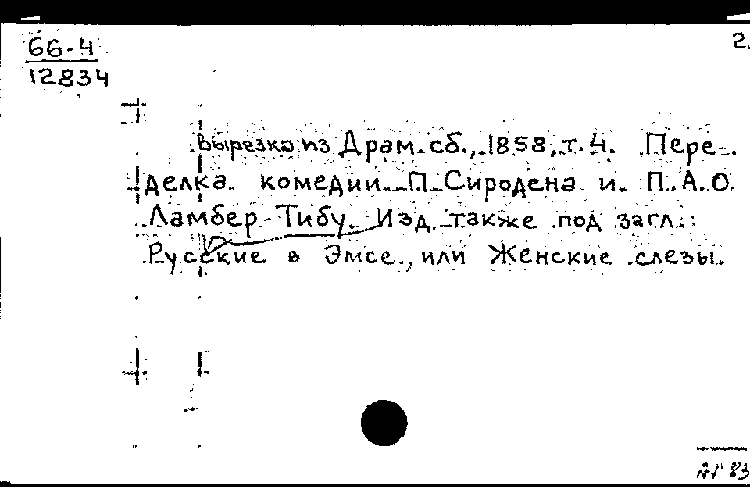 66-4
12834
2.
Вырезка из Драм. сб., 1858, т. 4. Пере-
делка комедии П. Сиродена и П. А. О.
Ламбер-Тибу. Изд. также под загл.:
Русские в Эмсе, или Женские слезы.